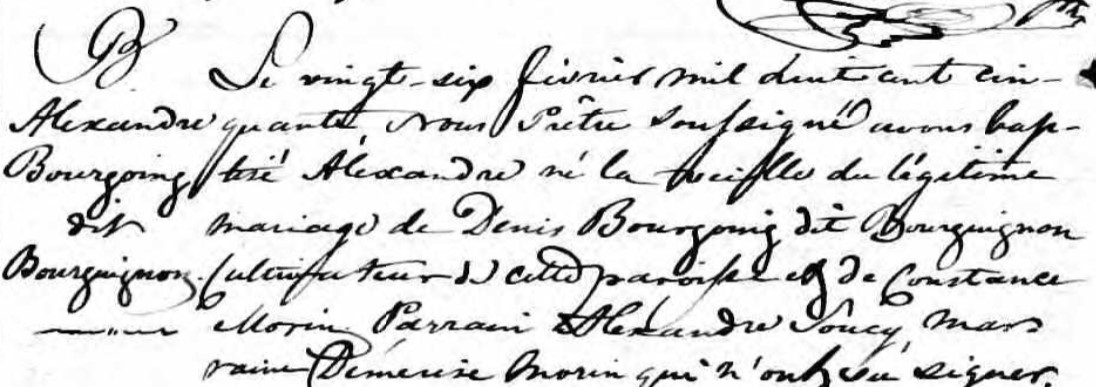 B.
Alexandre
Bourgoing
dit
Bourguignon.
Le vingt-six février mil huit cent cin-
quante, Nous Prêtre soussigné avons bap-
tisé Alexandre né la veille du légitime
mariage de Denis Bourgoing dit Bourguignon
Cultivateur de cette paroisse et de Constance
Morin. Parrain Alexandre Soucy, mar-
raine Démerise Morin qui n'ont su signer